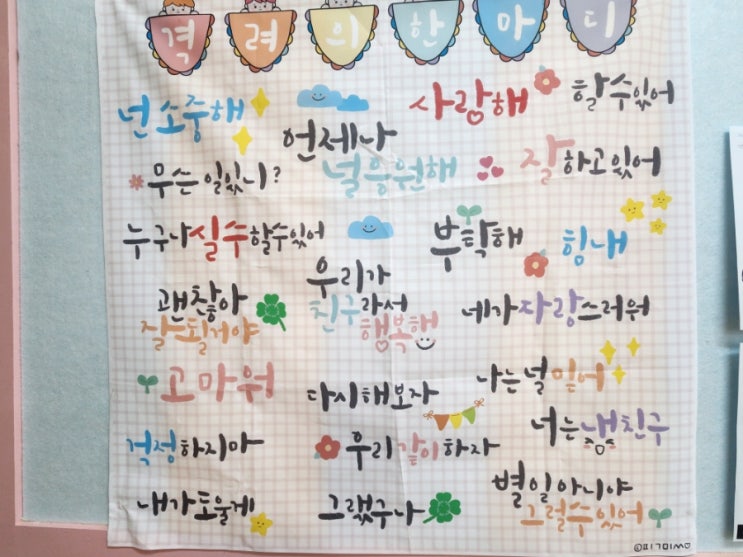 격려의한마디
넌 소중해
사랑해
할 수 있어
언제나
널 응원해
잘하고 있어
무슨 일 있니?
누구나 실수 할 수 있어
부탁해
힘내
우리가
친구라서
행복해
괜찮아
잘 될 거야
네가 자랑스러워
고마워
다시 해보자
나는 널 믿어
너는 내 친구
걱정하지마
우리 같이 하자
내가 도울게
그랬구나
별일 아니야
그럴 수 있어